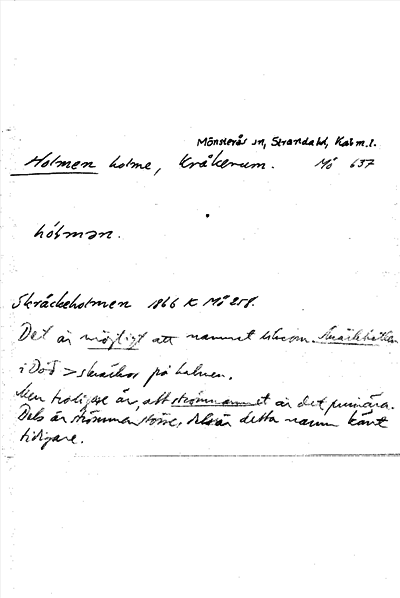 Mönsterås sn, Stranda hd, Kalm. l.
Holmen holme, Kråkerum. Mö 637
hólmən.
Skräckeholmen 1866 K Mö 258.
Det är möjligt att namnet
i Död > skräckor på holmen.
Men troligare är, att strömnamnet är det primära.
Dels är strömmen större, dels är detta namn känt
tidigare.